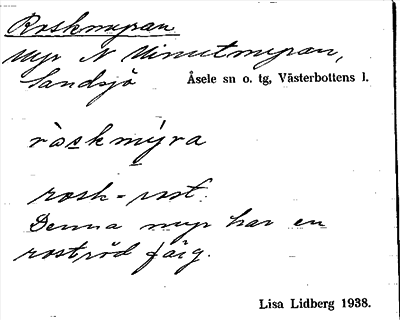 Roskmyran
Myr N Minutmyran,
Sandsjö Åsele sn o. tg, Västerbottens l.
ròskmýra
rosk = rost.
Denna myr har en
roströd färg.
Lisa Lidberg 1938.